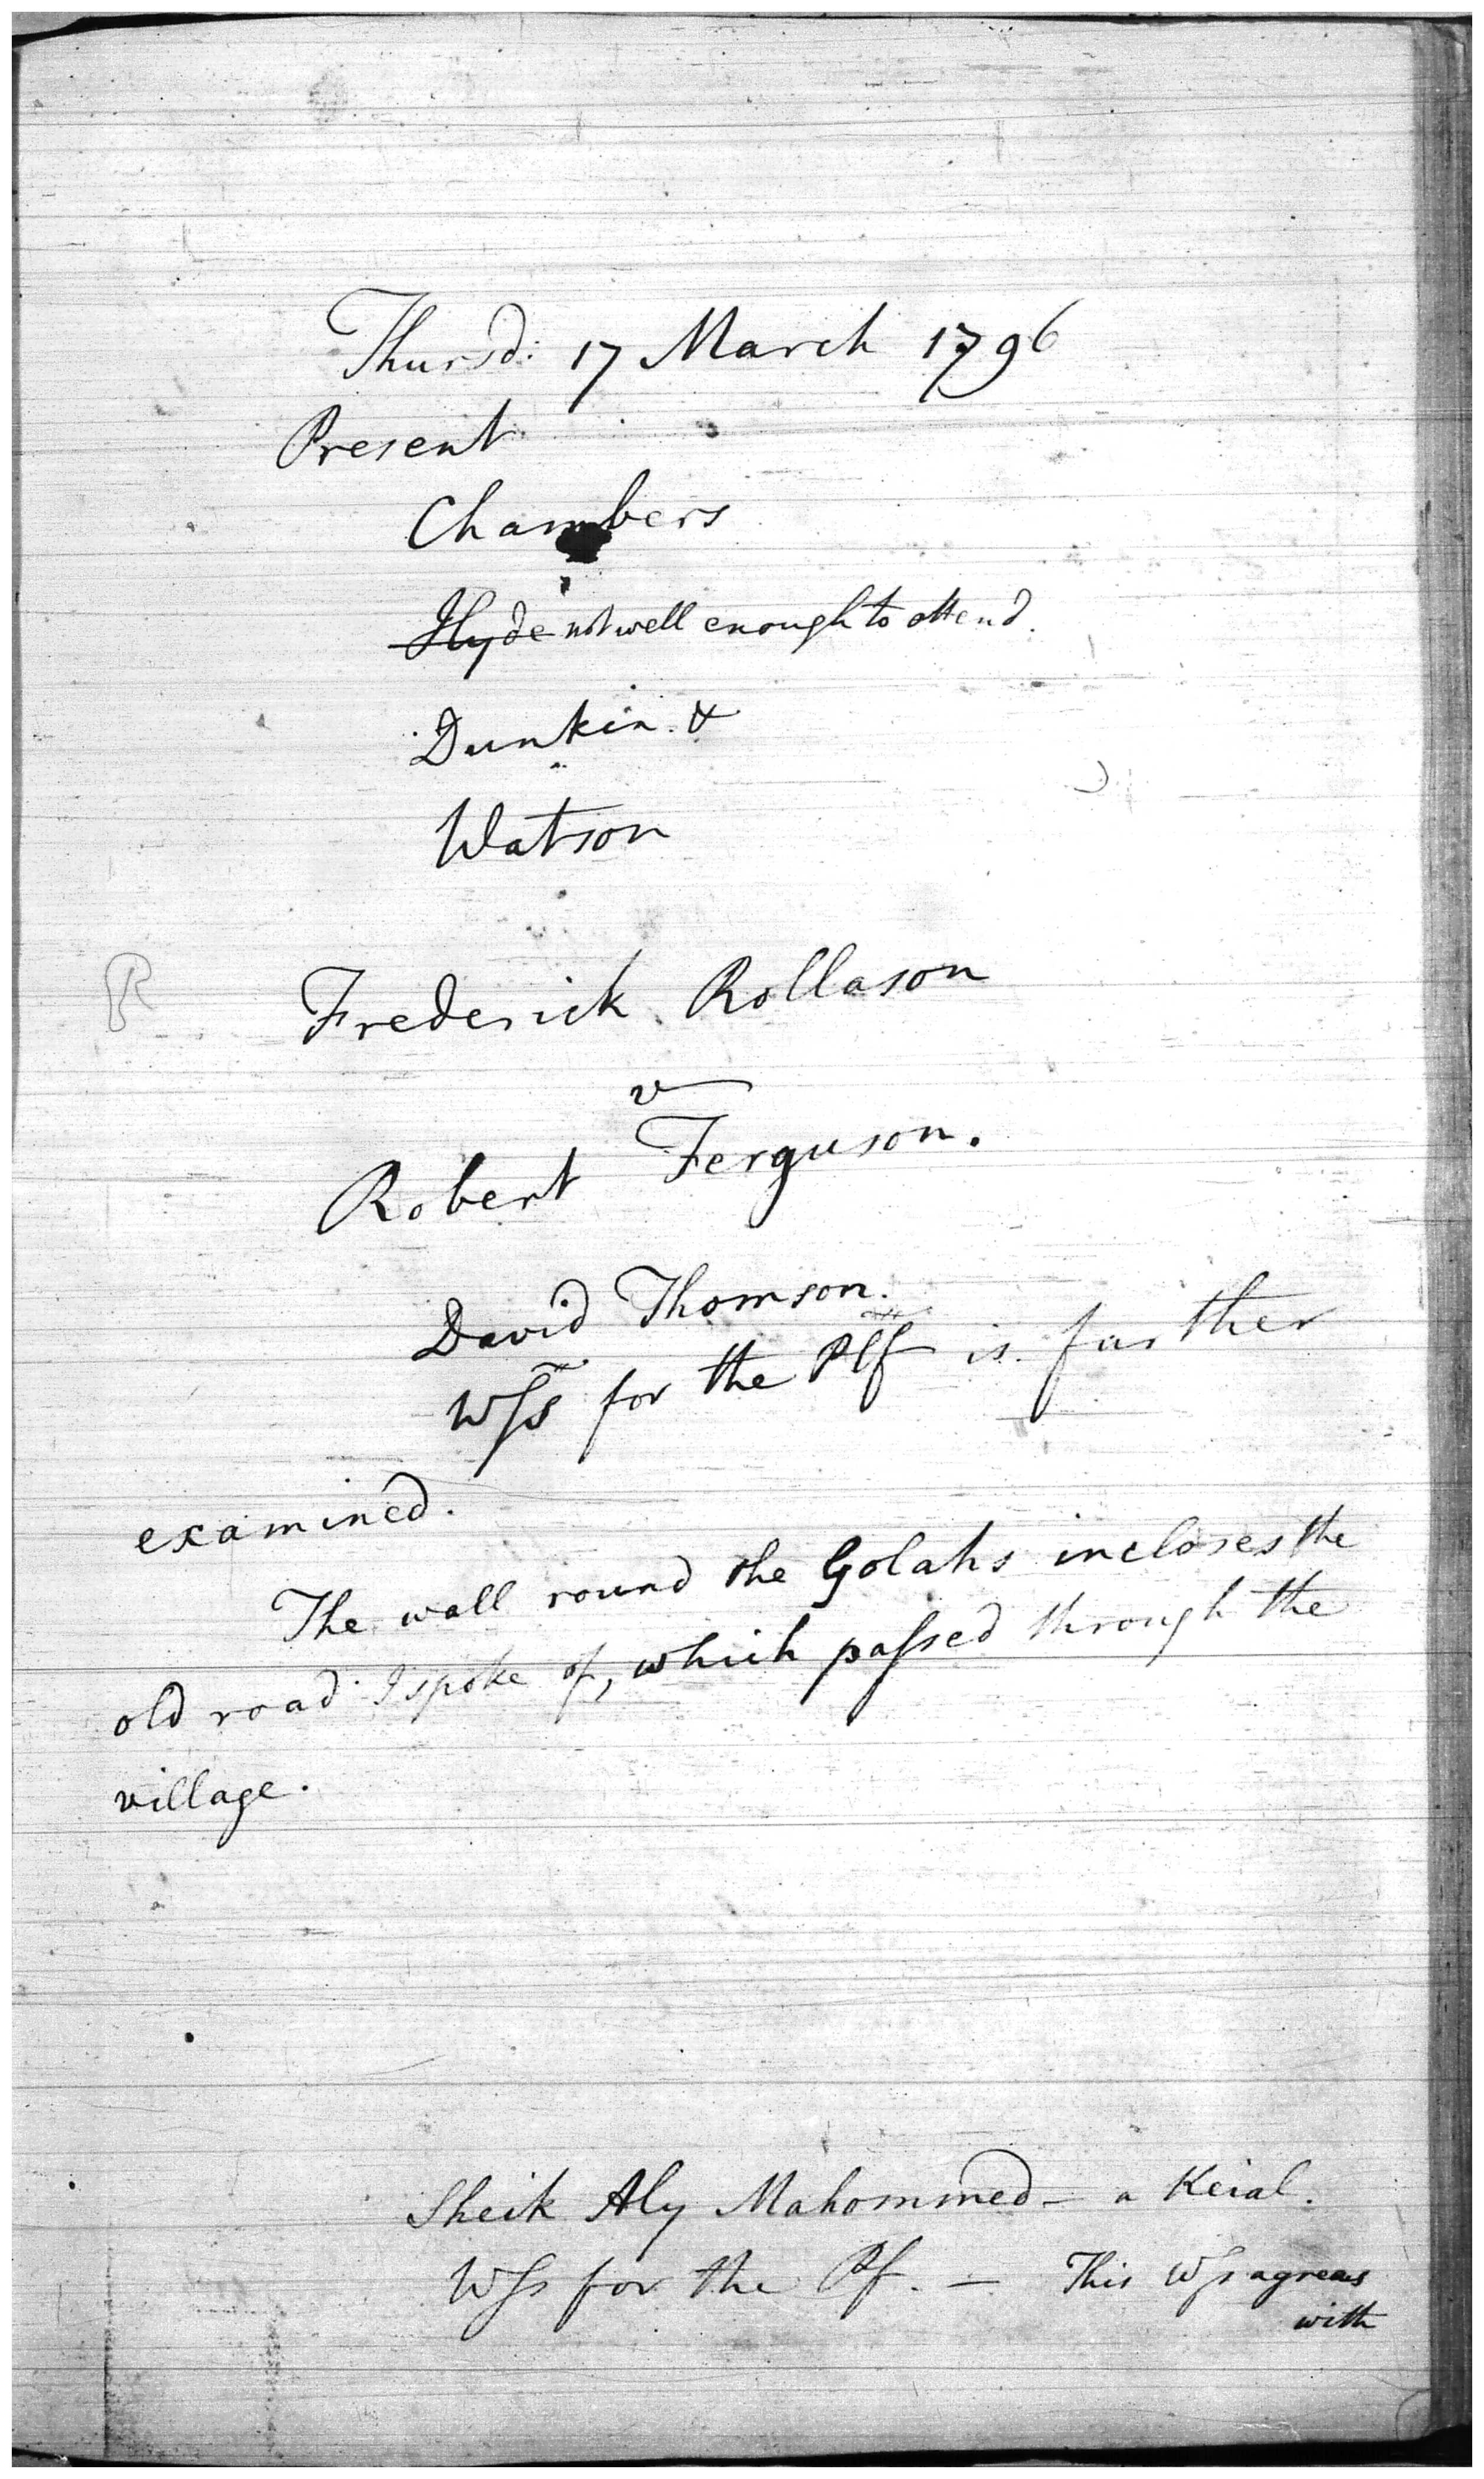 Thursd: 17 March 1796
Present
Chambers
Hyde not well enough to attend.
Dunkin &
Watson
Frederick Rollason
v
Robert Ferguson.
David Thomson.
Wſs for the Plf is further
examined.
The wall round the Golahs incloses the
old road I spoke of, which paſsed through the
village.
Sheik Aly Mahommed - a Keial.
Wſs for the Pf. — This Wſs agrees
with